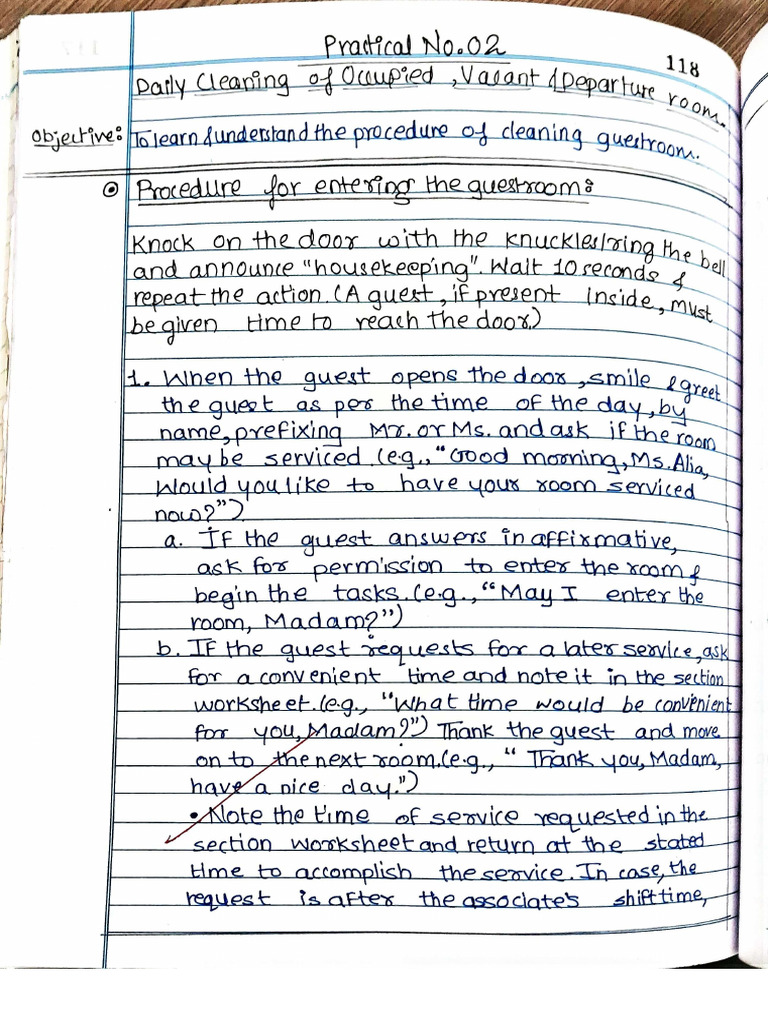 Practical No.02
118
Daily Cleaning of Occupied, Vacant & Departure room.
Objective: To learn & understand the procedure of cleaning guestroom.
Procedure for entering the guestroom:
Knock on the door with the knuckles/ring the bell
and announce "housekeeping". Wait 10 seconds &
repeat the action. (A guest, if present inside, must
be given time to reach the door.)
1. When the guest opens the door, smile & greet
the guest as per the time of the day, by
name, prefixing Mr. or Ms. and ask if the room
may be serviced (e.g., "Good morning, Ms. Alia,
Would you like to have your room serviced
now?")
a. If the guest answers in affirmative,
ask for permission to enter the room &
begin the tasks. (e.g., "May I enter the
room, Madam?")
b. If the guest requests for a later service, ask
for a convenient time and note it in the section
worksheet. (e.g., "What time would be convenient
for you, Madam?") Thank the guest and move
on to the next room. (e.g., "Thank you, Madam,
have a nice day.")
• Note the time of service requested in the
section worksheet and return at the stated
time to accomplish the service. In case, the
request is after the associate's shift time,